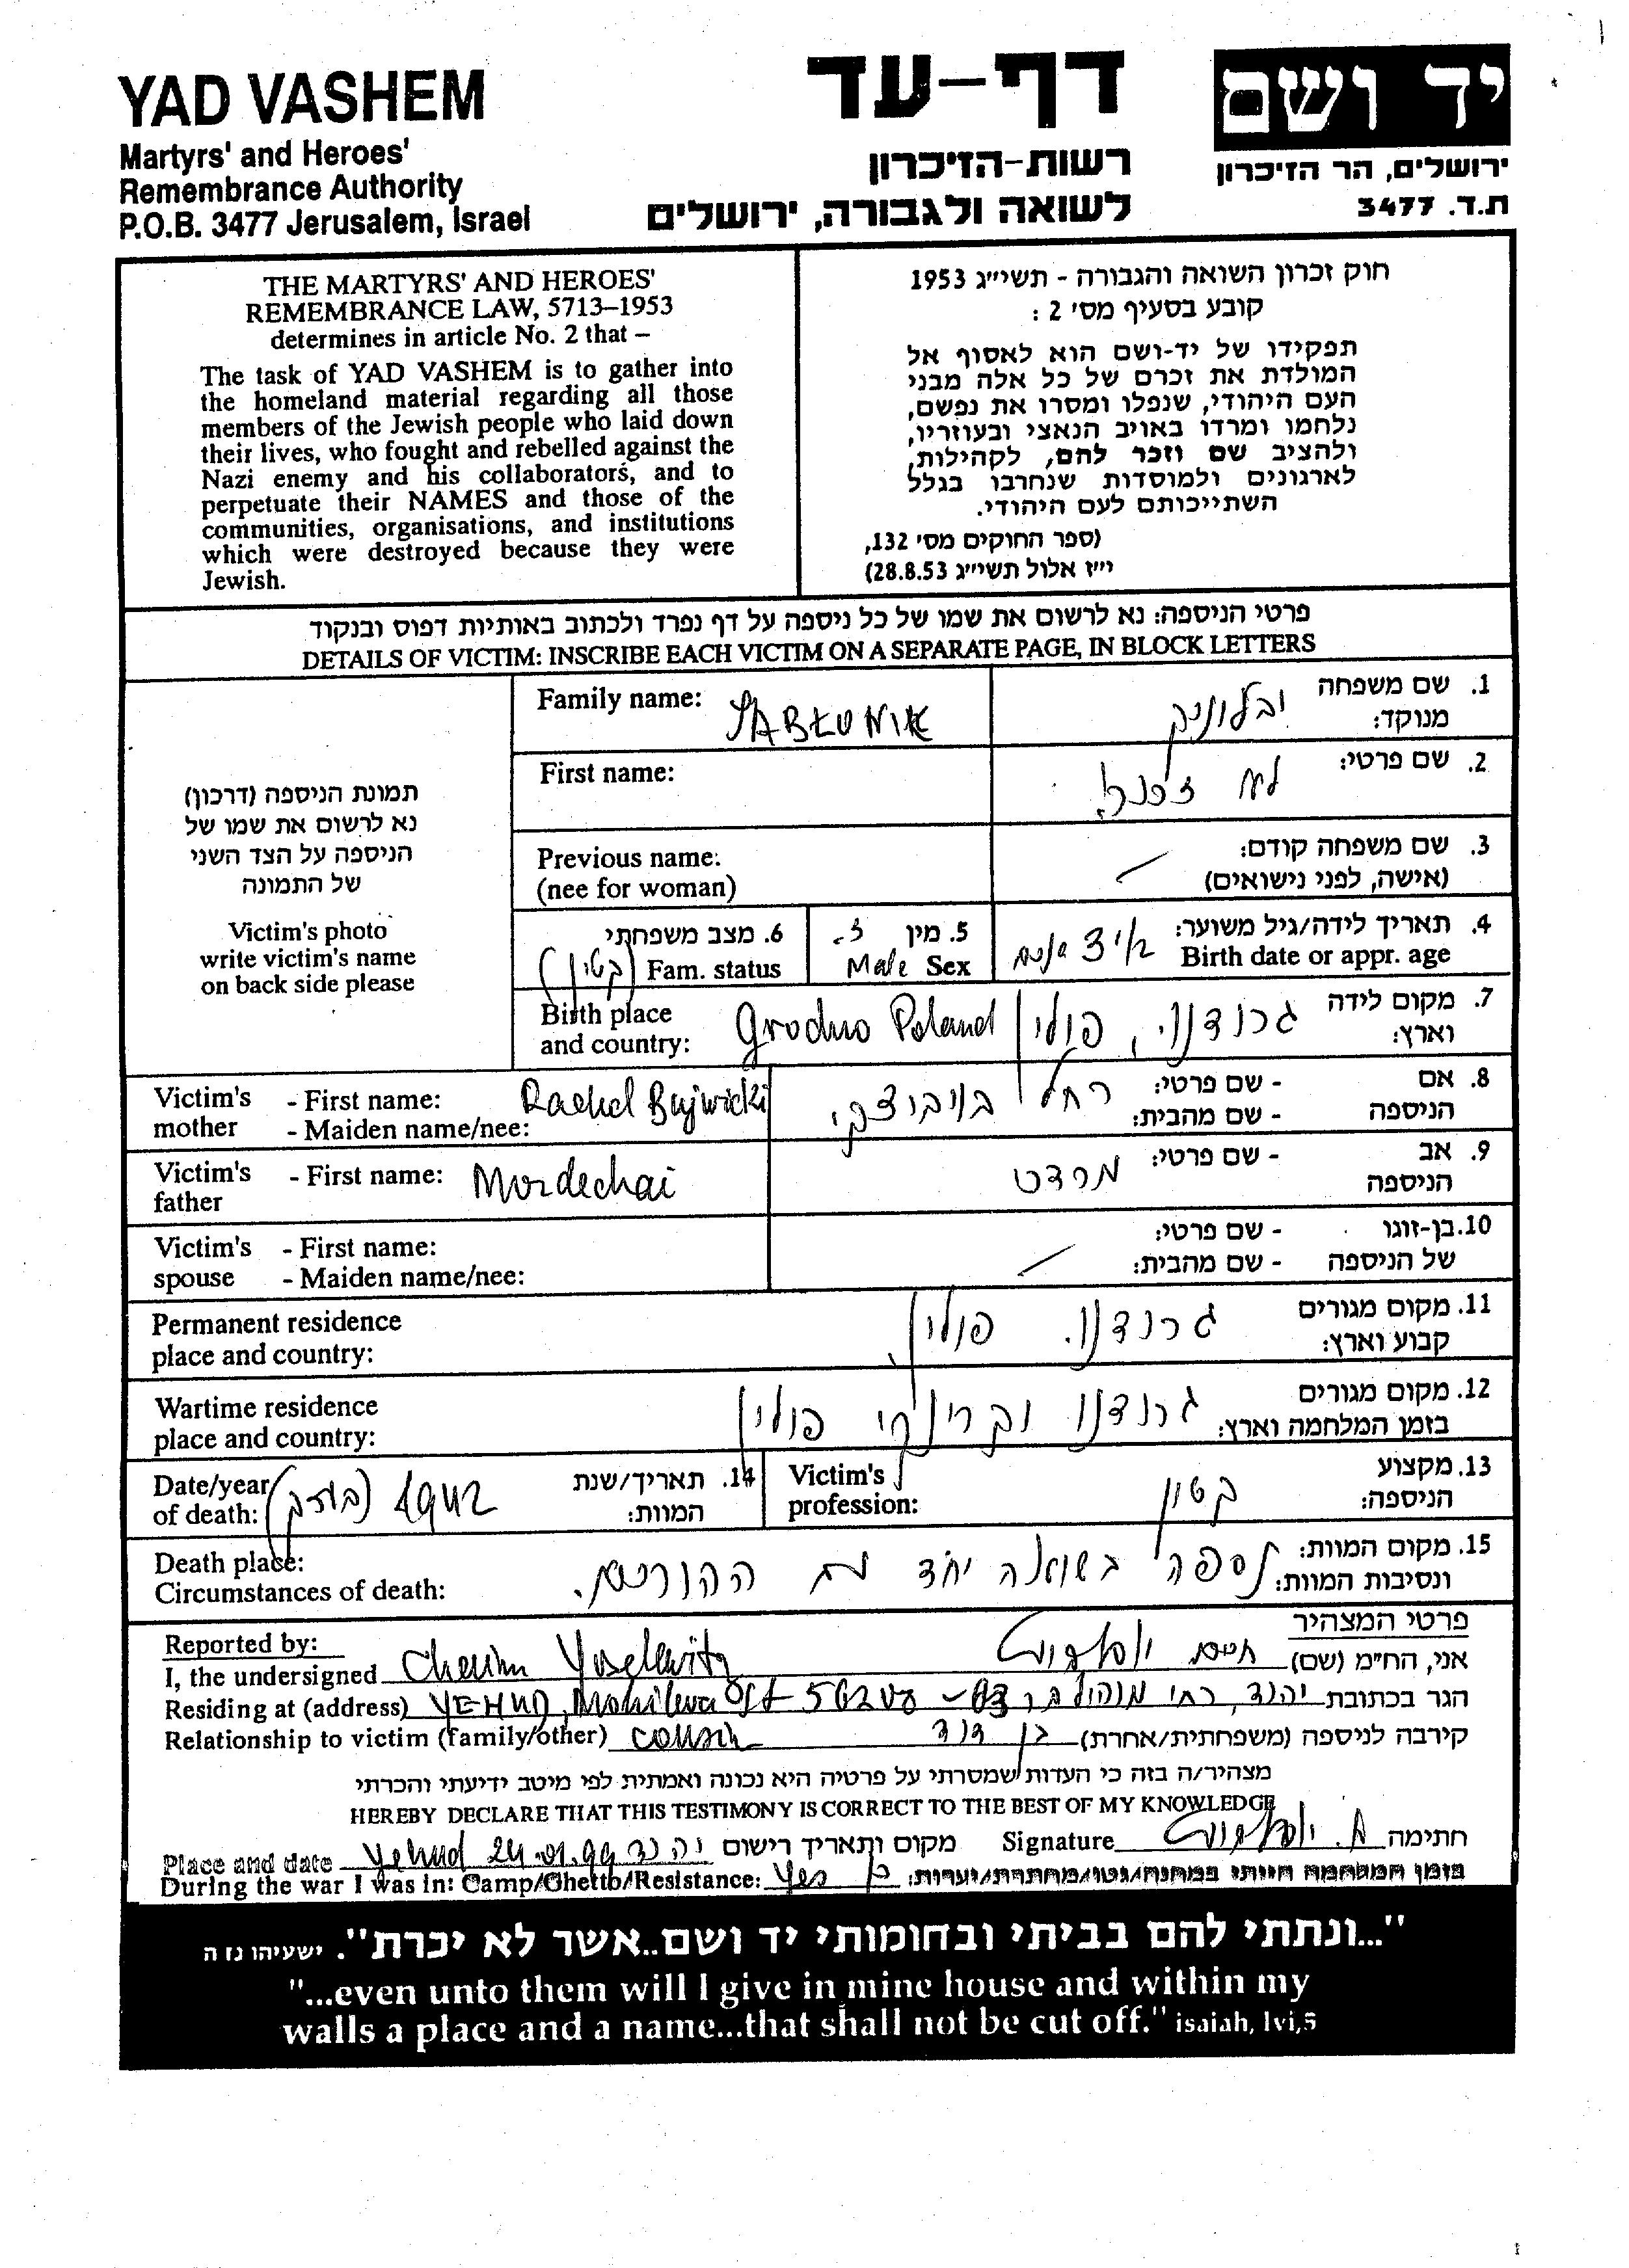 YAD VASHEM
Martyrs' and Heroes'
Remembrance Authority
P.O.B. 3477 Jerusalem, Israel
דף-עד
רשות-הזיכרון
לשואה ולגבורה, ירושלים
יד ושם
ירושלים, הר הזיכרון
ת.ד. 3477
THE MARTYRS' AND HEROES'
REMEMBRANCE LAW, 5713–1953
determines in article No. 2 that –
The task of YAD VASHEM is to gather into
the homeland material regarding all those
members of the Jewish people who laid down
their lives, who fought and rebelled against the
Nazi enemy and his collaborators, and to
perpetuate their NAMES and those of the
communities, organisations, and institutions
which were destroyed because they were
Jewish.
חוק זכרון השואה והגבורה - תשי״ג 1953
קובע בסעיף מס׳ 2 :
תפקידו של יד-ושם הוא לאסוף אל
המולדת את זכרם של כל אלה מבני
העם היהודי, שנפלו ומסרו את נפשם,
נלחמו ומרדו באויב הנאצי ובעוזריו,
ולהציב שם וזכר להם, לקהילות,
לארגונים ולמוסדות שנחרבו בגלל
השתייכותם לעם היהודי.
(ספר החוקים מס׳ 132,
י״ז אלול תשי״ג 28.8.53)
פרטי הניספה: נא לרשום את שמו של כל ניספה על דף נפרד ולכתוב באותיות דפוס ובנקוד
DETAILS OF VICTIM: INSCRIBE EACH VICTIM ON A SEPARATE PAGE, IN BLOCK LETTERS
תמונת הניספה (דרכון)
נא לרשום את שמו של
הניספה על הצד השני
של התמונה
Victim's photo
write victim's name
on back side please
Family name: JABŁONIK יבלוניק 1. שם משפחה
מנוקד:
First name: לא 2. שם פרטי:
Previous name:
(nee for woman)
3. שם משפחה קודם:
(אישה, לפני נישואים)
6. מצב משפחתי
(קטין) Fam. status
5. מין ז.
Male Sex
4. תאריך לידה/גיל משוער:
Birth date or appr. age
Birth place
and country: Grodno Poland גרודנו, פולין 7. מקום לידה
וארץ:
Victim's mother - First name: Rachel Bujwicki
- Maiden name/nee:
8. אם הניספה - שם פרטי: רחל
- שם מהבית:
Victim's father - First name: Mordechai
9. אב הניספה - שם פרטי: מרדכי
Victim's spouse - First name:
- Maiden name/nee:
10. בן-זוגו של הניספה - שם פרטי:
- שם מהבית:
Permanent residence
place and country:
11. מקום מגורים
קבוע וארץ: גרודנו. פולין
Wartime residence
place and country:
12. מקום מגורים
בזמן המלחמה וארץ: גרודנו וקרינקי פולין
Date/year
of death: 1942
14. תאריך/שנת
המוות:
Victim's
profession:
13. מקצוע
הניספה: קטין
Death place:
Circumstances of death:
15. מקום המוות:
ונסיבות המוות: נספה בשואה יחד עם ההורים.
Reported by:
פרטי המצהיר
I, the undersigned Chaim Yoselewitz חיים אני, הח״מ (שם)
Residing at (address) YEHUD, הגר בכתובת יהוד, רח׳
Relationship to victim (family/other) cousin בן דוד קירבה לניספה (משפחתית/אחרת)
מצהיר/ה בזה כי העדות שמסרתי על פרטיה היא נכונה ואמתית לפי מיטב ידיעתי והכרתי
HEREBY DECLARE THAT THIS TESTIMONY IS CORRECT TO THE BEST OF MY KNOWLEDGE
Place and date Yehud 24.01.99 יהוד מקום ותאריך רישום Signature חתימה
During the war I was in: Camp/Ghetto/Resistance: Yes כן בזמן המלחמה הייתי במחנה/גטו/מחתרת/יערות:
"...ונתתי להם בביתי ובחומותי יד ושם..אשר לא יכרת". ישעיהו נו ה
"...even unto them will I give in mine house and within my
walls a place and a name...that shall not be cut off." isaiah, lvi,5